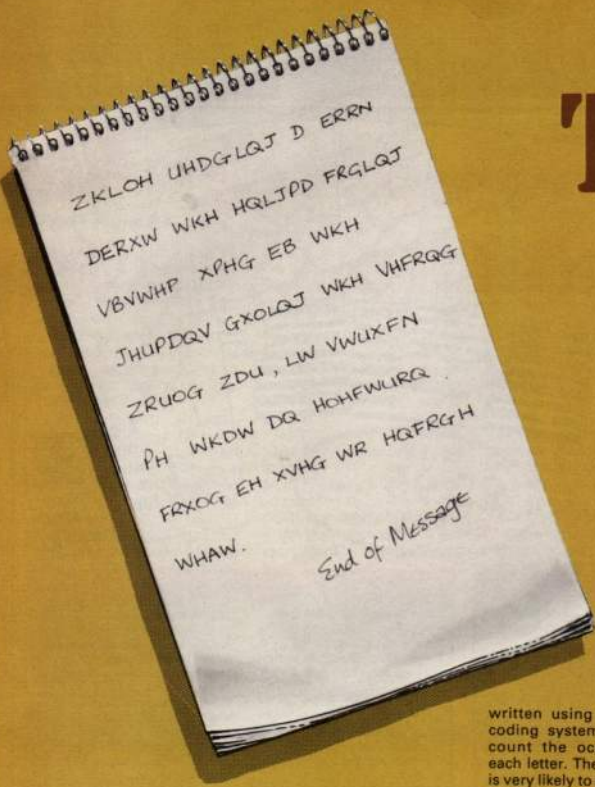 ZKLOH UHDGLQJ D ERRN
DERXW WKH HQLJPD FRGLQJ
VBVWHP XPHG EB WKH
JHUPDQV GXOLQJ WKH VHFRQG
ZRUOG ZDU, LW VWUXFN
PH WKDW DQ HOHFWURQ.
FRXOG EH XVHG WR HQFRGH
WHAW.
End of Message
T
written using
coding system
count the oc
each letter. The
is very likely to